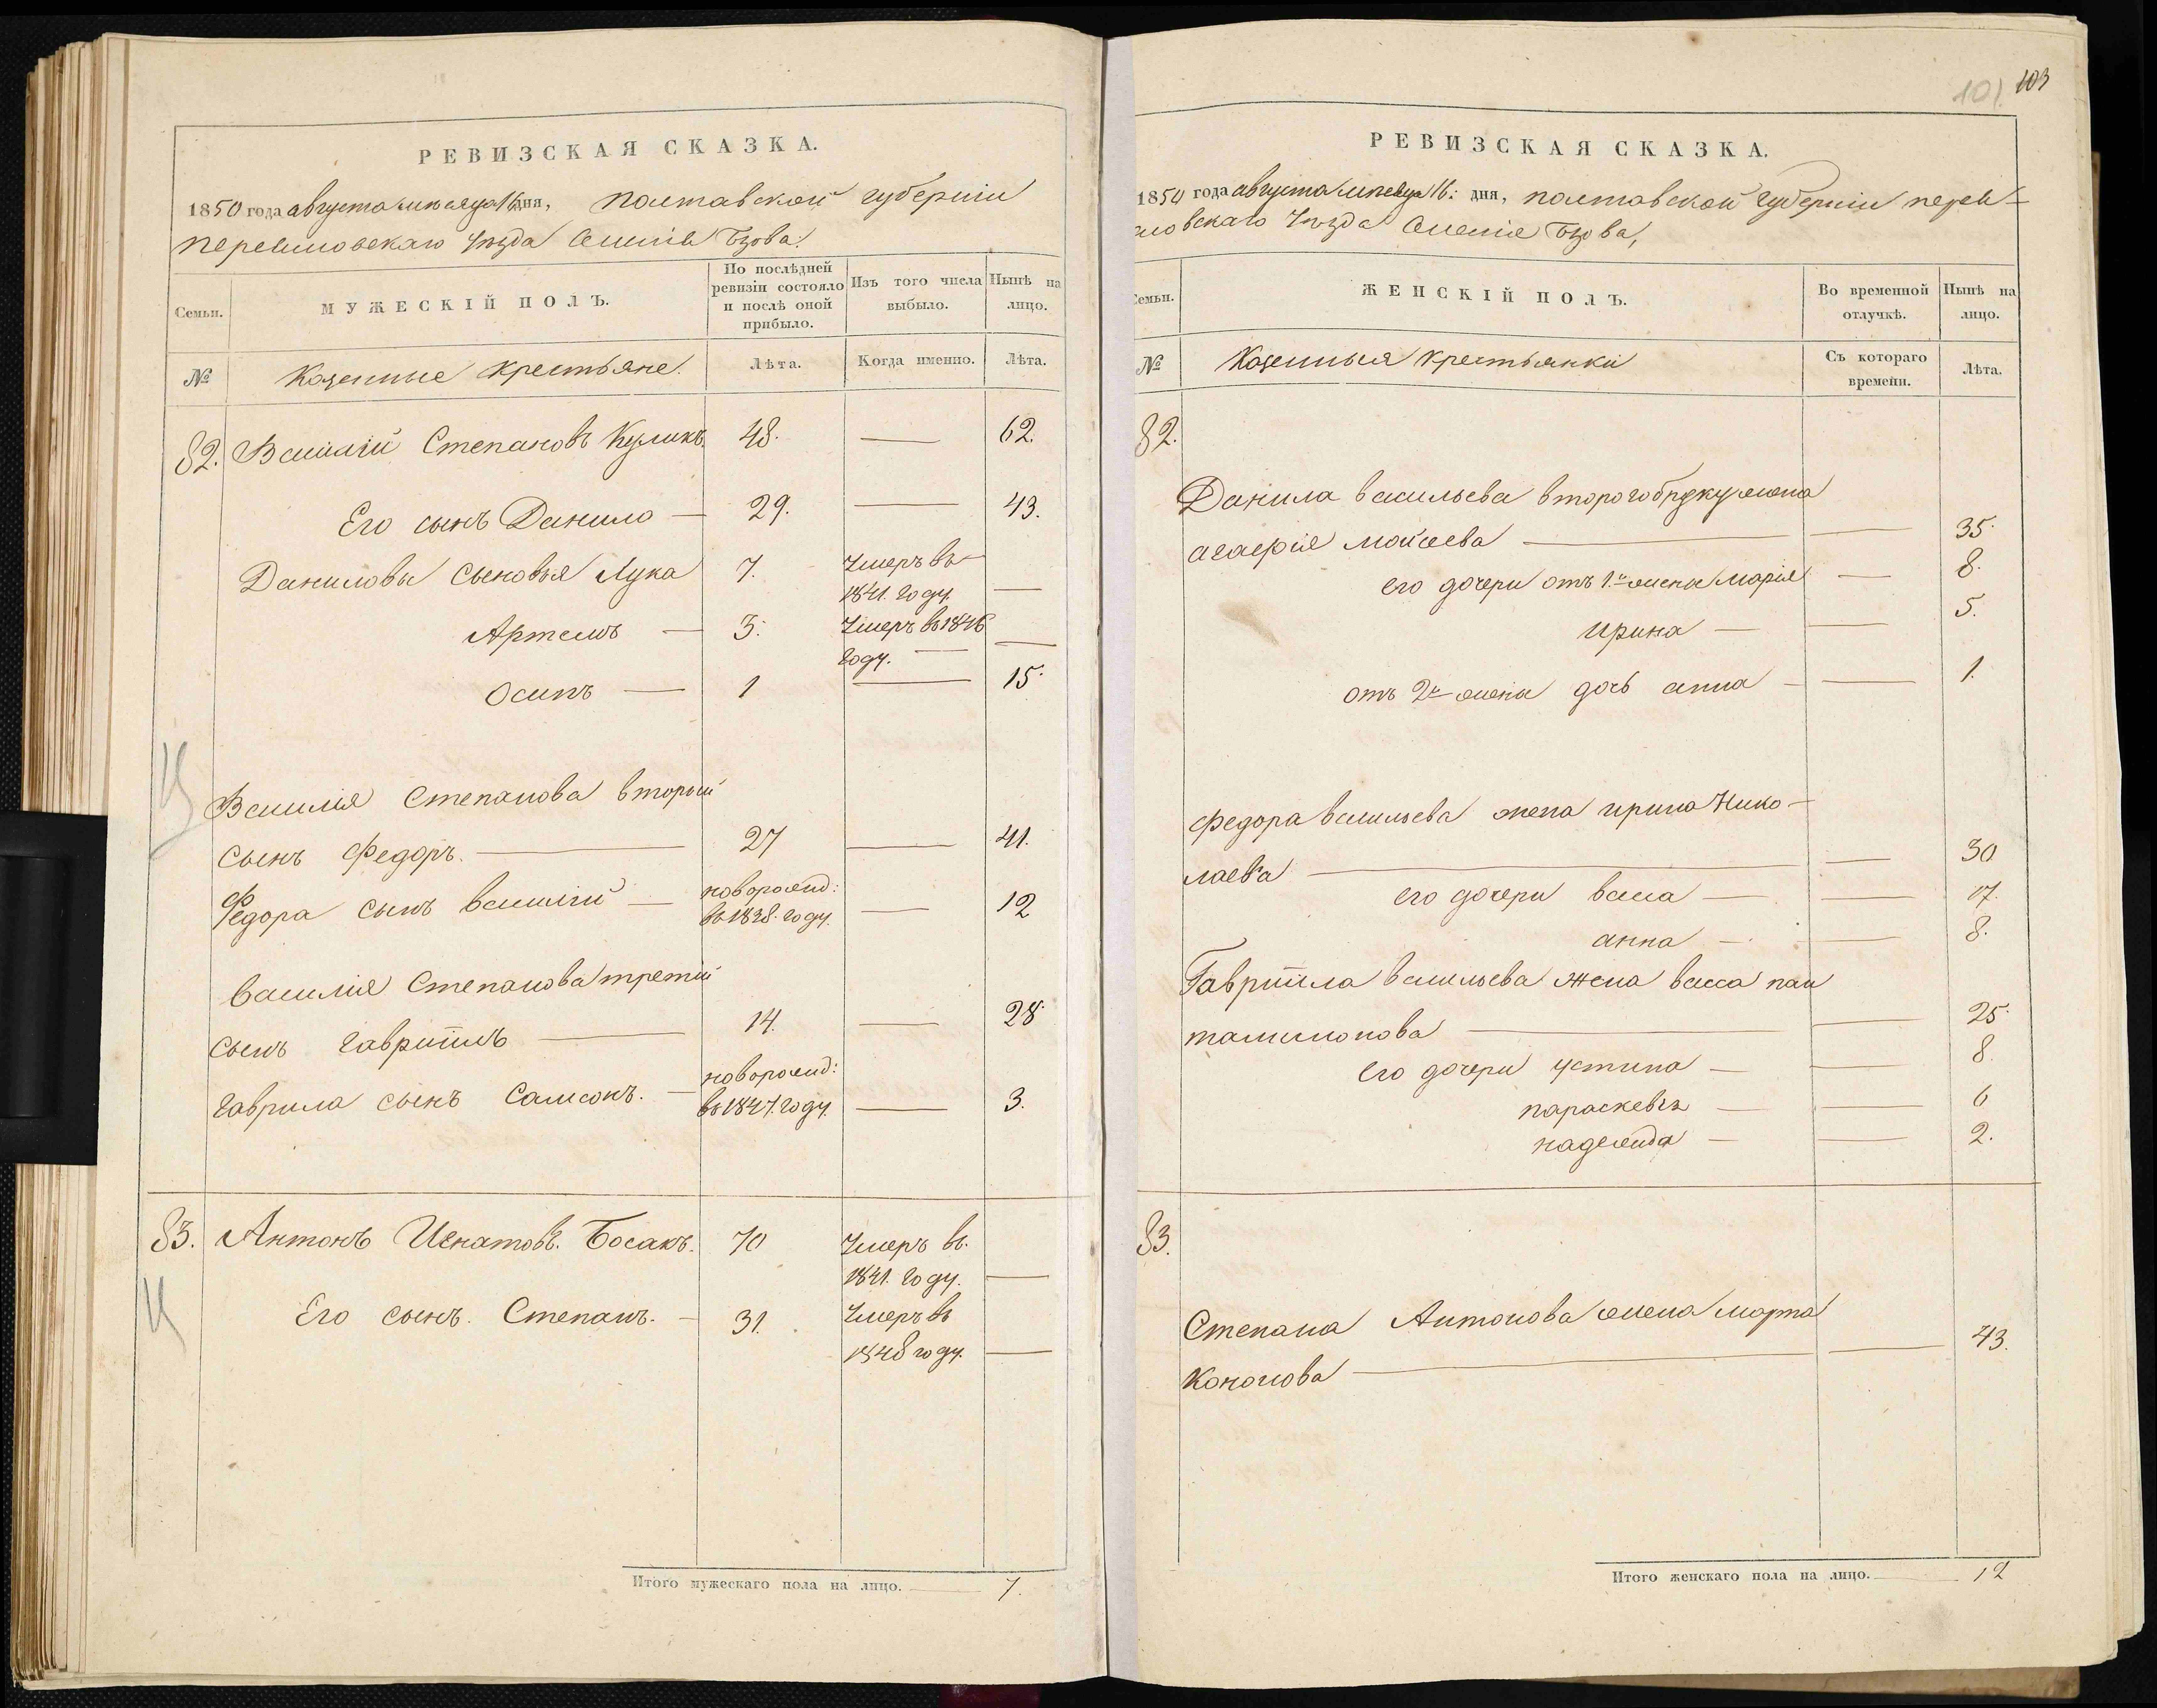 РЕВИЗСКАЯ СКАЗКА.
1850 года августа месяца 16 дня, полтавской губернiи
Семьи.
МУЖЕСКIЙ ПОЛЪ.
По послѣдней ревизiи состояло и послѣ оной прибыло.
Изъ того числа выбыло.
Нынѣ на лицо.
№
Казенные крестьяне.
Лѣта.
Когда именно.
Лѣта.
82. Василiй Степановъ Куликъ. 48. — 62.
Его сынъ Данило — 29. — 43.
Даниловы сыновья Лука 7. Умеръ въ
1841. году. —
Артемъ — 3. Умеръ въ 1846
году. — —
Осипъ — 1 — 15.
Василiя Степанова вторый
сынъ Федоръ. — 27 — 41.
Федора сынъ василiй — новорожд:
въ 1838. году. — 12
Василiя Степанова третiй
сынъ гаврiилъ — 14. — 28
гаврила сынъ Самсонъ. — новорожд:
въ 1847. году. — 3.
83. Антонъ Игнатовъ. Босакъ. 70 Умеръ въ.
1841. году. —
Его сынъ. Степанъ. — 31. Умеръ въ
1848 году. —
Итого мужескаго пола на лицо. — 7.
101 103
РЕВИЗСКАЯ СКАЗКА.
1850 года августа месяца 16: дня, полтавской губернiи
Семьи.
ЖЕНСКIЙ ПОЛЪ.
Во временной отлучкѣ.
Нынѣ на лицо.
№
Казенныя крестьянки
Съ котораго времени.
Лѣта.
82.
Данила васильева жена
агафiя мойсеева — — 35.
его дочери отъ 1. жены марiя — 8.
ирина — — 5.
отъ 2й жены дочь анна — — 1.
федора васильева жена ирина Нико-
лаева — — 30
его дочери васса — — 17.
анна — — 8.
Гаврiила васильева жена васса пан
талимонова — — 25.
его дочери устина — — 8.
параскевiя — — 6
надежда — — 2.
83.
Степана Антонова жена марта
Кононова — — 43.
Итого женскаго пола на лицо. — 12